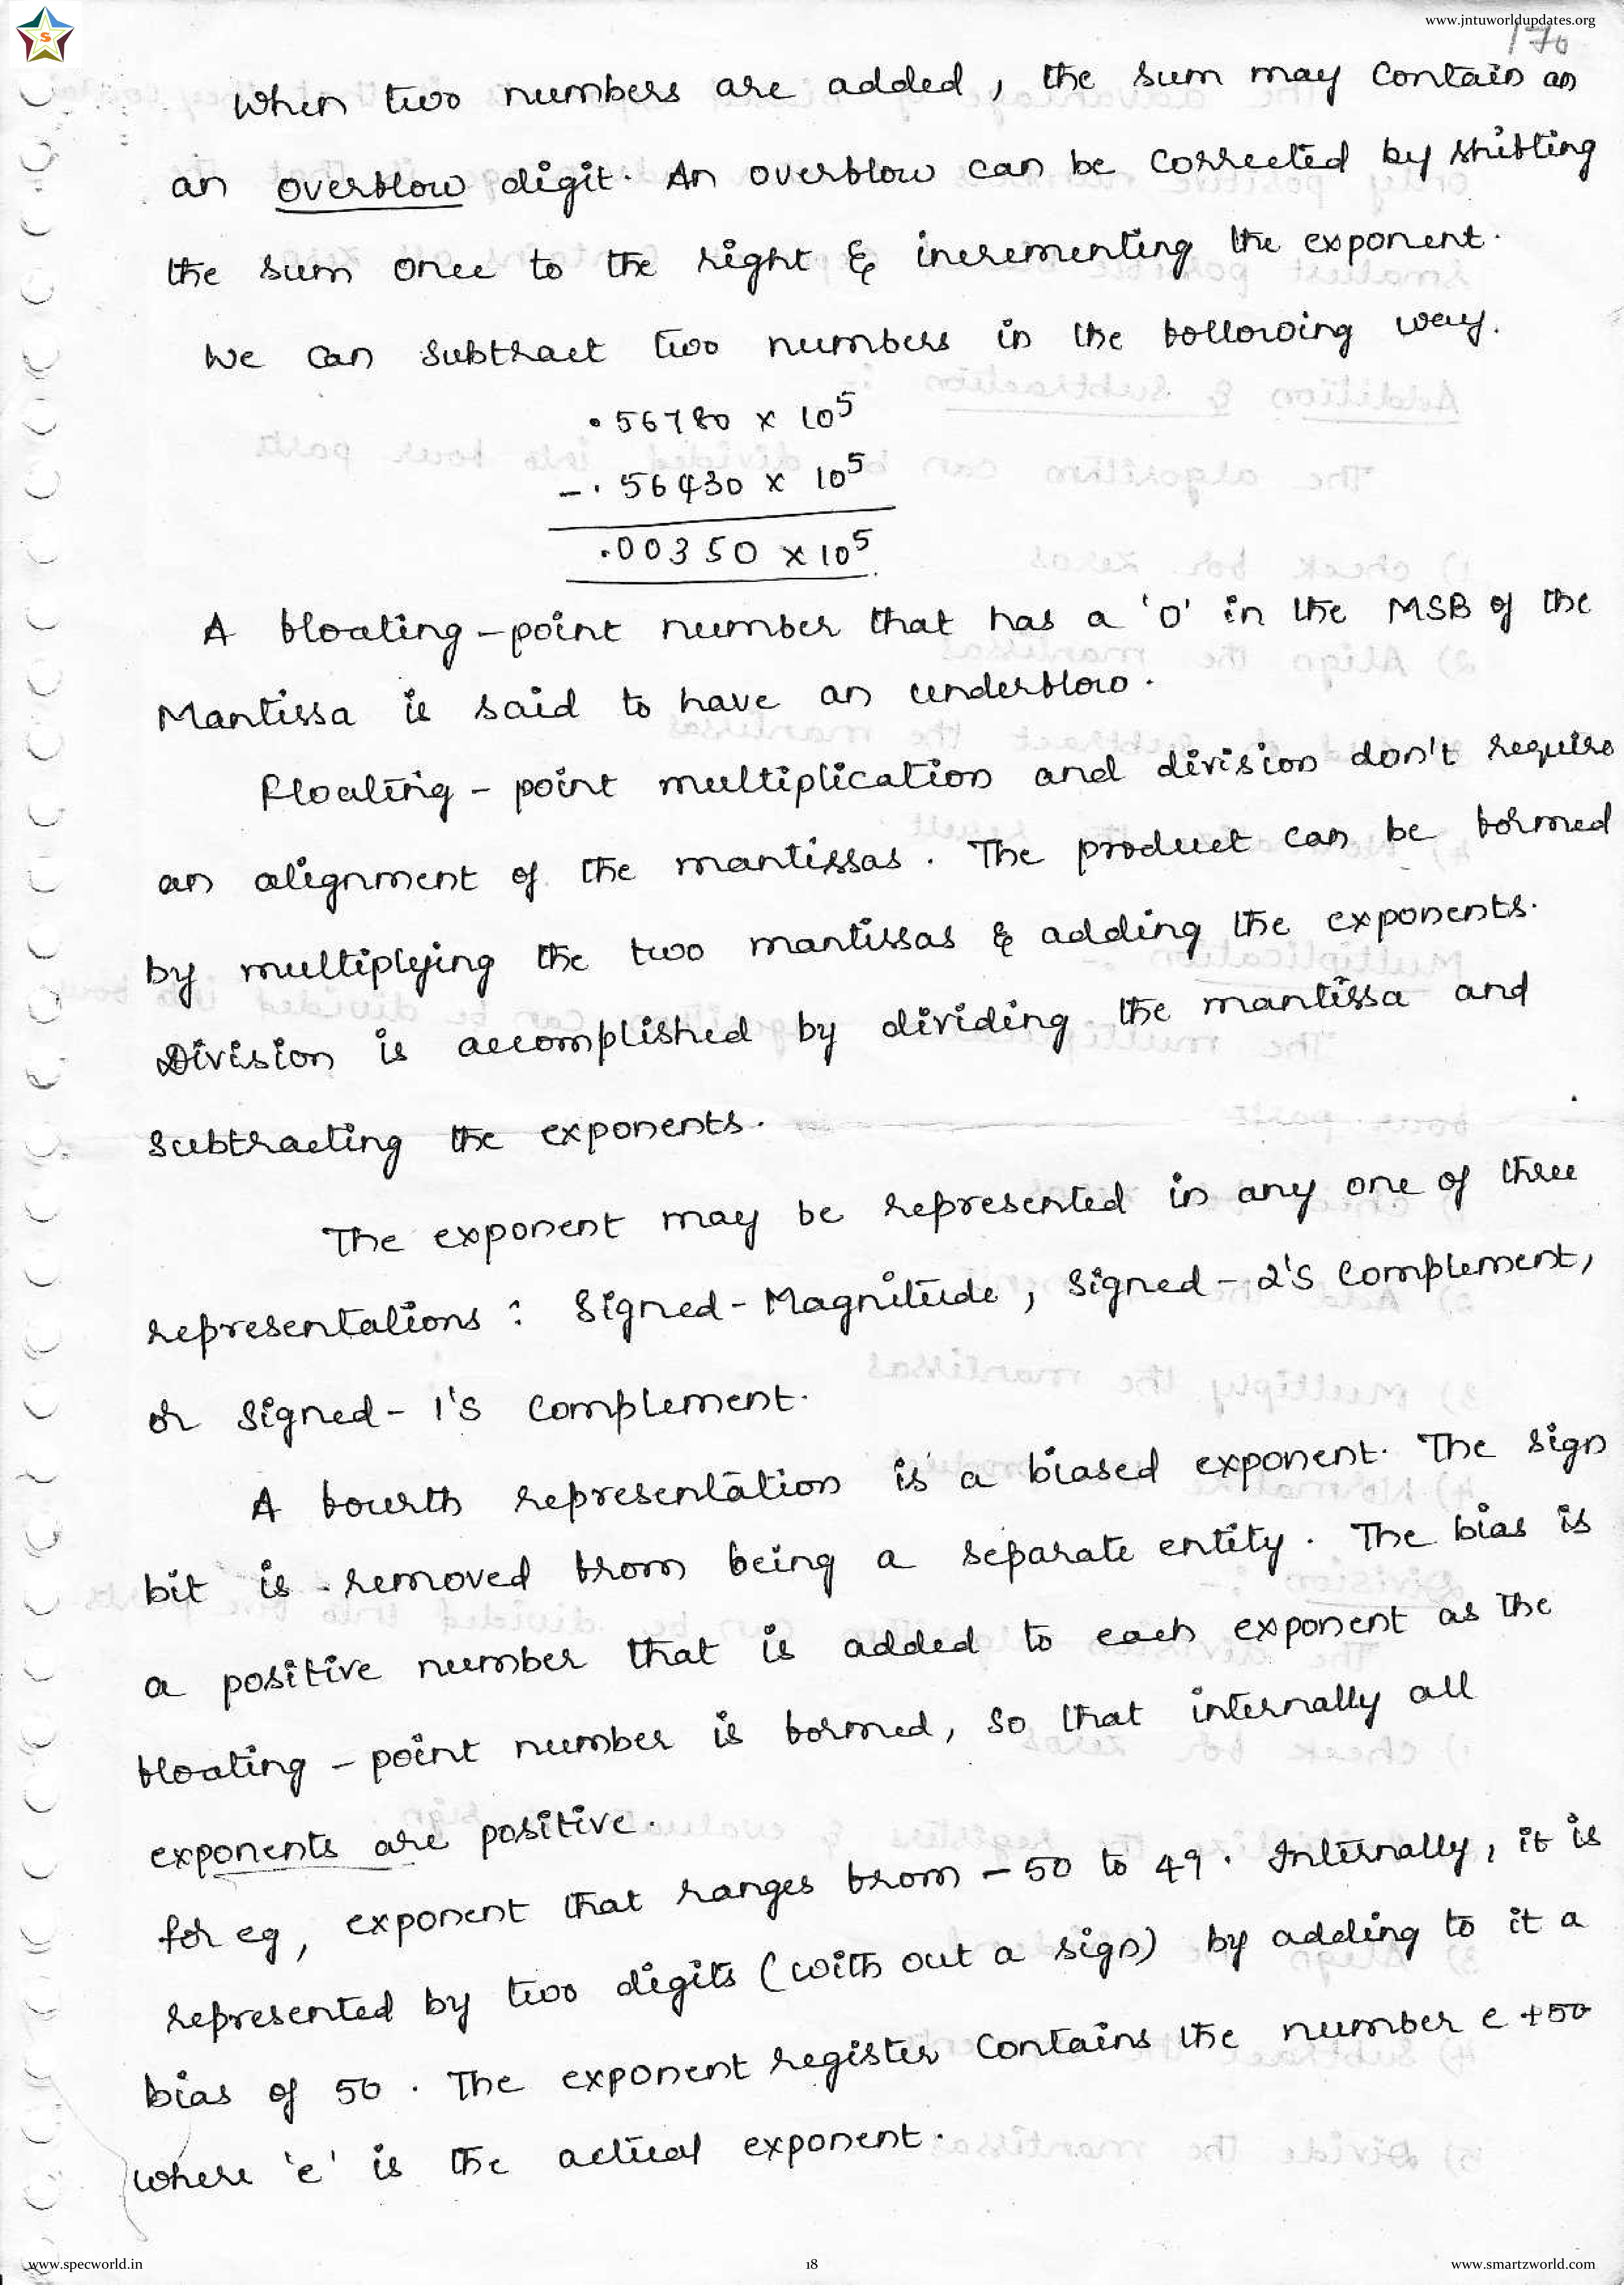 S
www.jntuworldupdates.org
170
When two numbers are added, the sum may contain an
an overflow digit. An overflow can be corrected by shifting
the sum once to the right & incrementing the exponent.
We can subtract two numbers in the following way.
.56780 x 10^5
- .56430 x 10^5
.00350 x 10^5
A floating-point number that has a '0' in the MSB of the
Mantissa is said to have an underflow.
Floating-point multiplication and division don't require
an alignment of the mantissas. The product can be formed
by multiplying the two mantissas & adding the exponents.
Division is accomplished by dividing the mantissa and
Subtracting the exponents.
The exponent may be represented in any one of three
representations : Signed-Magnitude, Signed-2's Complement,
or Signed-1's Complement.
A fourth representation is a biased exponent. The sign
bit is removed from being a separate entity. The bias is
a positive number that is added to each exponent as the
floating-point number is formed, so that internally all
exponents are positive.
for eg, exponent that ranges from -50 to 49. Internally, it is
represented by two digits (with out a sign) by adding to it a
bias of 50. The exponent register contains the number e+50
where 'e' is the actual exponent.
www.specworld.in
18
www.smartzworld.com